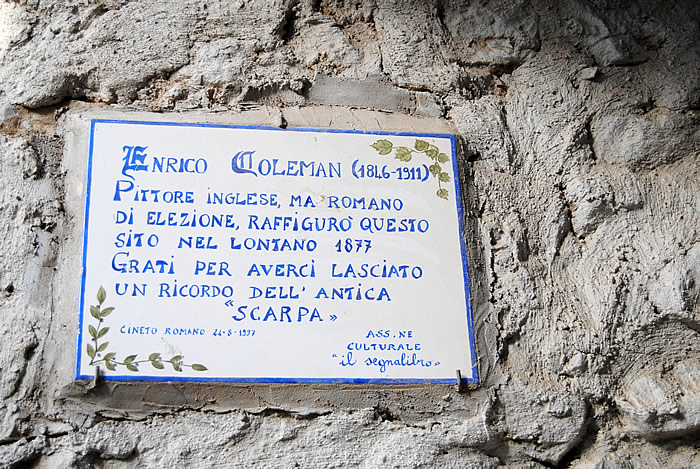 ENRICO COLEMAN (1846-1911)
PITTORE INGLESE, MA ROMANO
DI ELEZIONE, RAFFIGURÒ QUESTO
SITO NEL LONTANO 1877
GRATI PER AVERCI LASCIATO
UN RICORDO DELL' ANTICA
"SCARPA»
CINETO ROMANO 22-8-1997
ASS.NE
CULTURALE
"il segnalibro»